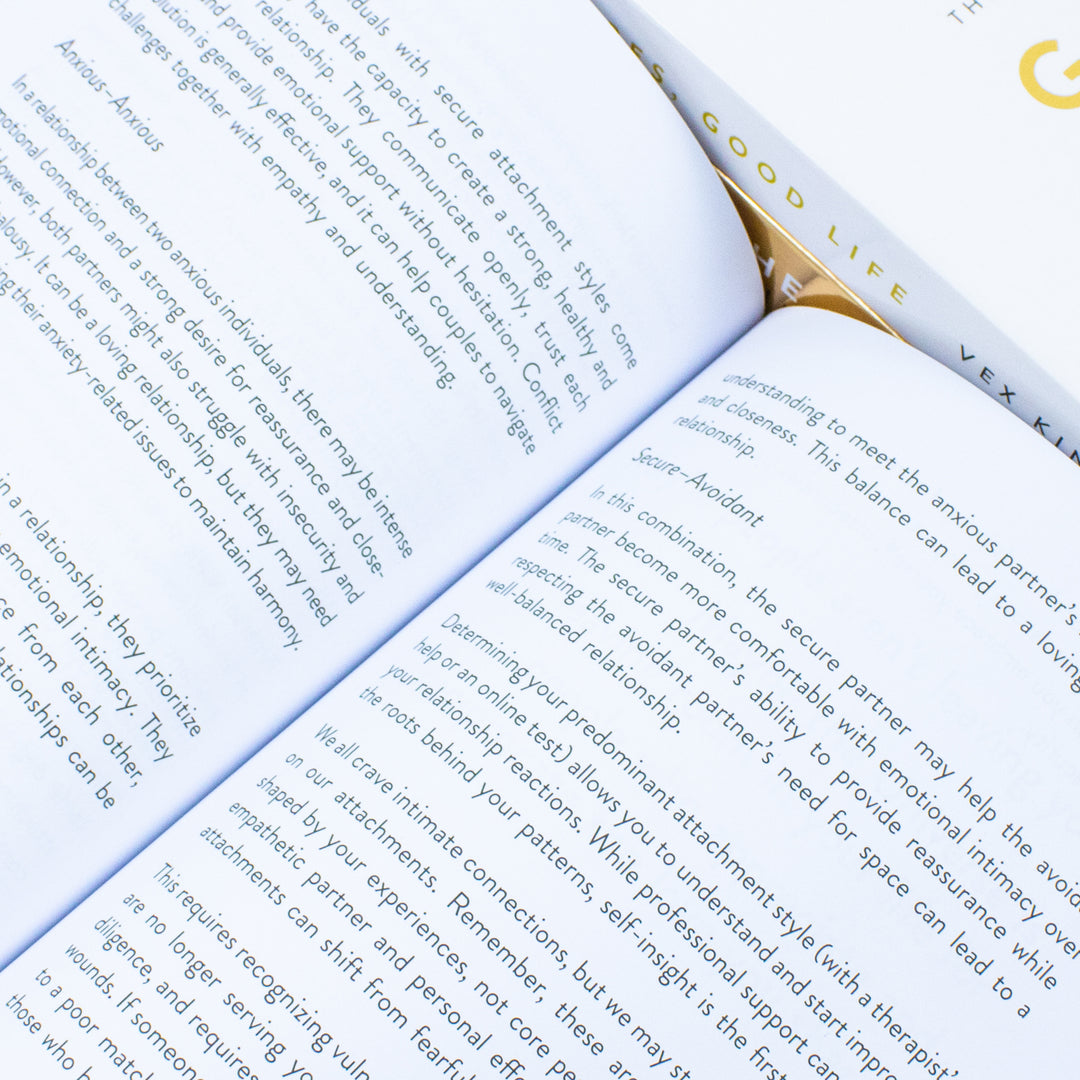 viduals with secure attachment styles come
have the capacity to create a strong, healthy and
relationship. They communicate openly, trust each
and provide emotional support without hesitation. Conflict
is generally effective, and it can help couples to navigate
challenges together with empathy and understanding.
Anxious–Anxious
In a relationship between two anxious individuals, there may be intense
emotional connection and a strong desire for reassurance and close-
However, both partners might also struggle with insecurity and
It can be a loving relationship, but they may need
their anxiety-related issues to maintain harmony.
in a relationship, they prioritize
emotional intimacy. They
from each other,
can be
understanding to meet the anxious partner's
and closeness. This balance can lead to a loving
relationship.
Secure–Avoidant
In this combination, the secure partner may help the
partner become more comfortable with emotional intimacy over
time. The secure partner's ability to provide reassurance while
respecting the avoidant partner's need for space can lead to a
well-balanced relationship.
Determining your predominant attachment style (with a therapist's
help or an online test) allows you to understand and start
your relationship reactions. While professional support can
the roots behind your patterns, self-insight is the first
We all crave intimate connections, but we may
on our attachments. Remember, these
shaped by your experiences, not core
empathetic partner and personal
attachments can shift from
This requires recognizing
are no longer serving
diligence, and requires
wounds. If someone
to a poor
those who
GOOD LIFE
VEX
HE
TH
G